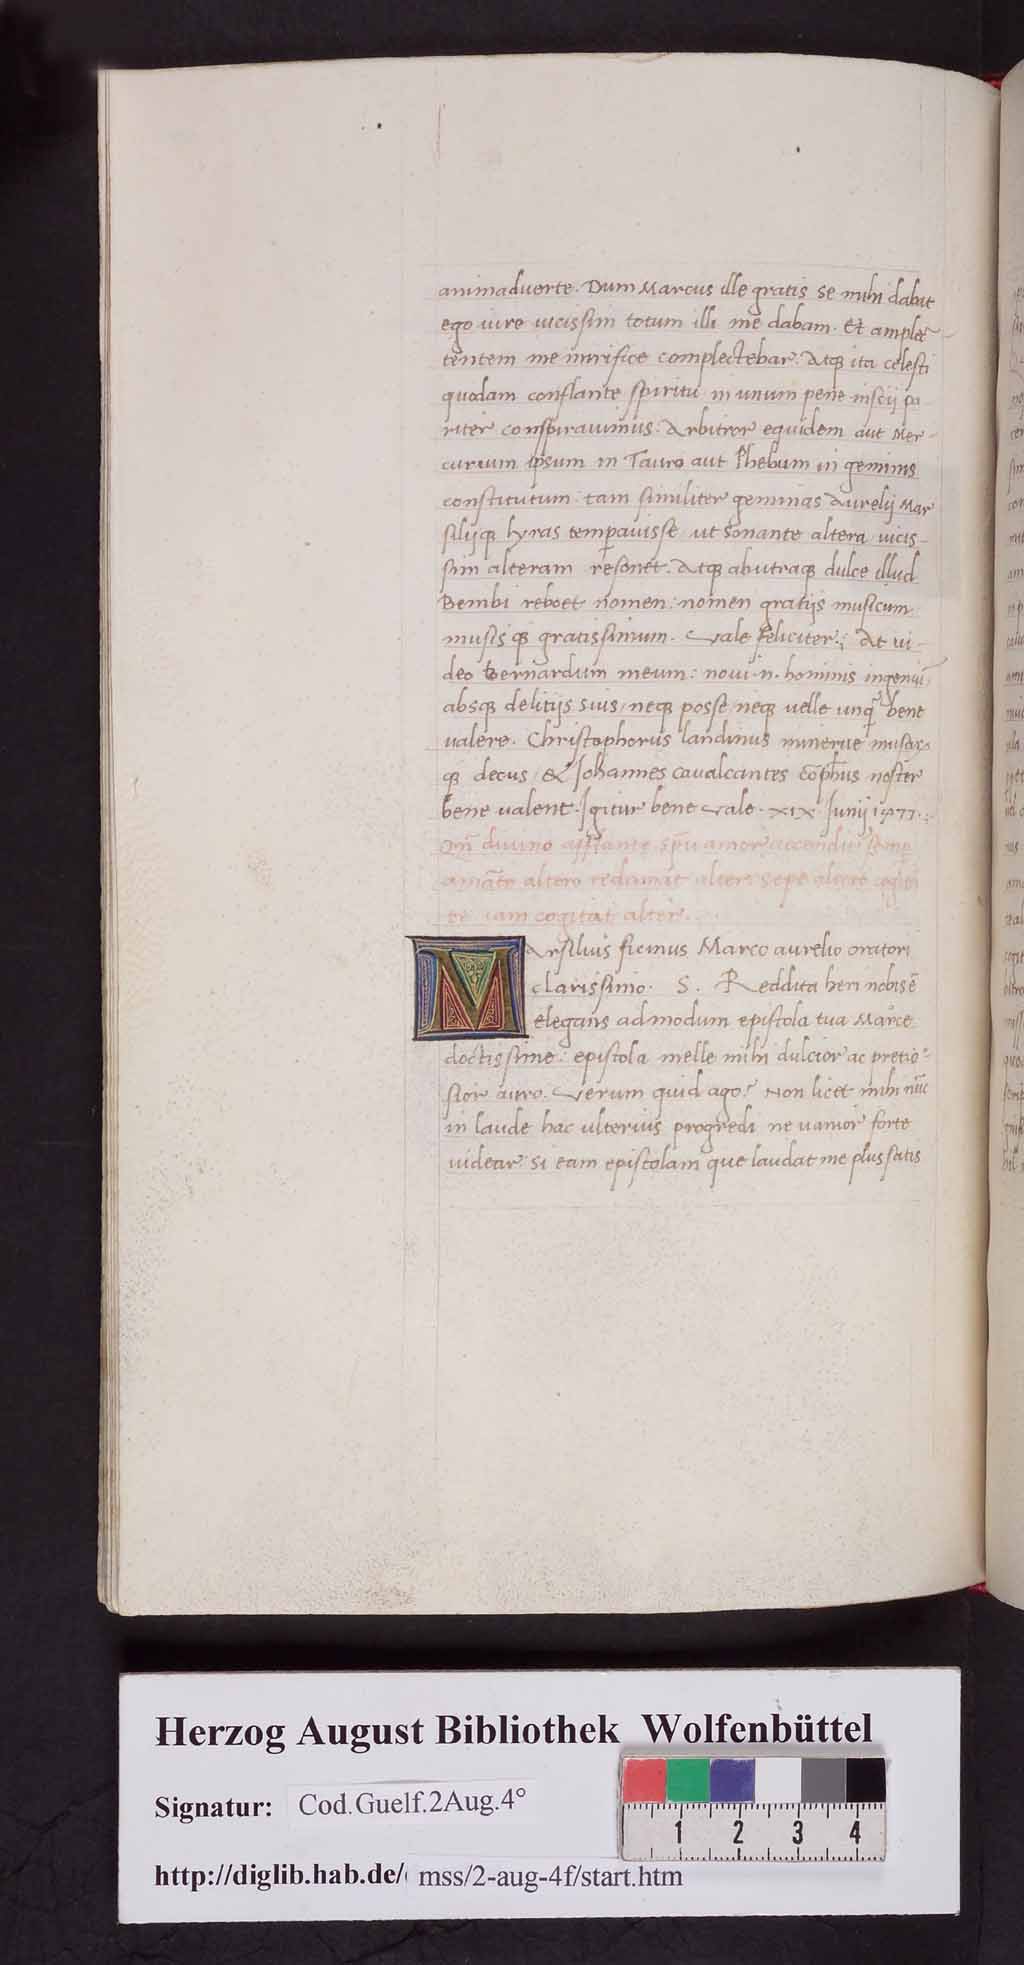 animaduerte. Dum Marcus ille gratis se mihi dabit
ego iure uicissim totum illi me dabam. Et amplec
tentem me mirifice complectebar. Atq; ita celesti
quodam conflante spiritu in unum pene inscij pa
riter conspirauimus. Arbitror equidem aut Mer-
curium ipsum in Tauro aut Phebum in geminis
constitutum: tam similiter geminas Aurelij Mar
silijq; lyras temperauisse ut sonante altera uicis-
sim alteram resonet. Atq; abutraq; dulce illud
Bembi reboet nomen: nomen gratijs musicum
musisq; gratissimum. Vale feliciter; At ui-
deo bernardum meum: noui .n. hominis ingeniū
absq; delitijs suis / neq; posse / neq; uelle unq̄ bene
ualere. Christophorus landinus minerue musarꝝ
q; decus / & Johannes caualcantes cōphus noster
bene ualent. Igitur bene vale. xix Junij 1477.
Qn̄ diuino afflante spū amor accendit semp
amāte altero redamat alter: sepe altero cogitā
te iam cogitat alter.
MArsilius ficinus Marco aurelio oratori
clarissimo. S. Reddita heri nobis ē
elegans admodum epistola tua Marce
doctissime: epistola melle mihi dulcior ac pretio-
sior auro. Verum quid ago? Non licet mihi nūc
in laude hac ulterius progredi ne uanior forte
uidear: si eam epistolam que laudat me plus satis
Herzog August Bibliothek Wolfenbüttel
Signatur: Cod.Guelf.2Aug.4°
http://diglib.hab.de/ mss/2-aug-4f/start.htm
1 2 3 4